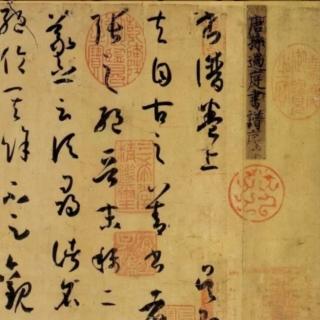 唐孫過庭書譜序
書譜卷上 吳
夫自古之善書者
張之絕晉末稱二
羲之云頃尋諸名
絕倫其餘不足觀